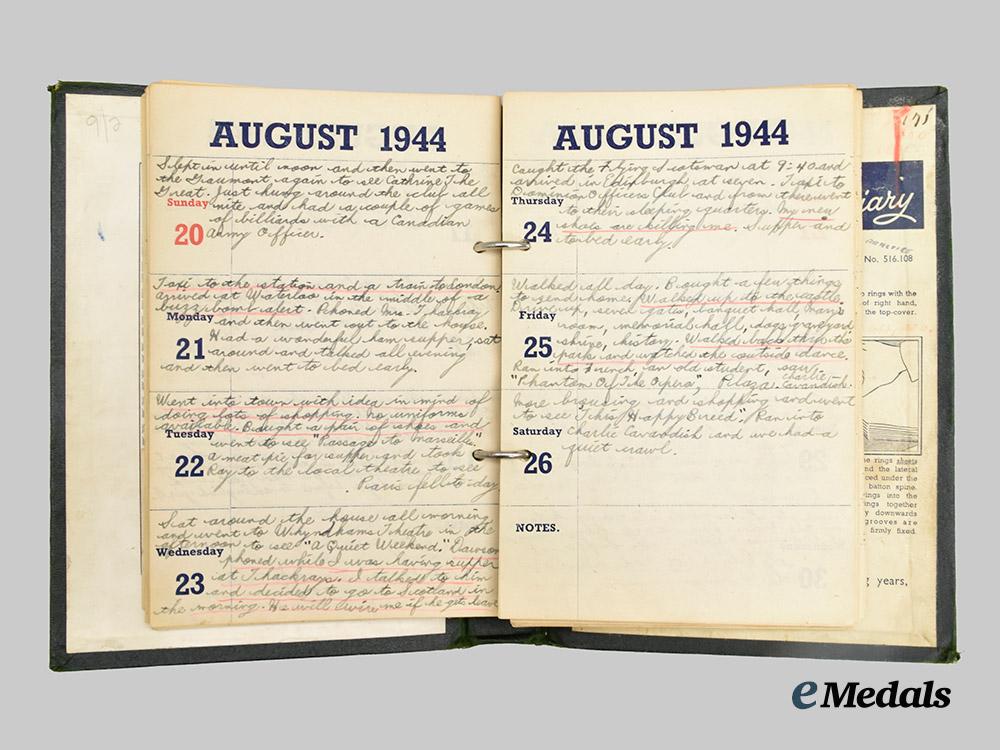 AUGUST 1944
Slept in until noon and then went to
the Gaumont again to see Cathrine The
Great. Just hung around the club all
Sunday nite and had a couple of games
of billiards with a Canadian
20 Army Officer.
Taxi to the station and a train to London
arrived at Waterloo in the middle of a
buzz bomb alert. Phoned Mrs. Thackray
Monday and then went out to the house.
21 Had a wonderful ham supper, sat
around and talked all evening
and then went to bed early.
Went into town with idea in mind of
doing lots of shopping. No uniforms
available. Bought a pair of shoes and
Tuesday went to see "Passage to Marseille"
22 a meat pie for supper and took
Ray to the local theatre to see
Paris fell to-day
Sat around the house all morning
and went to Whyndhams Theatre in the
afternoon to see "A Quiet Weekend." Dawson
Wednesday phoned while I was having supper
23 at Thackrays. I talked to him
and decided to go to Scotland in
the morning. He will wire me if he gets leave
AUGUST 1944
Caught the Flying Scotsman at 9:40 and
arrived in Edinburgh at seven. Taxi to
Dominion Officers Club and from there went
Thursday to their sleeping quarters. My new
24 shoes are killing me. Supper and
to bed early.
Walked all day. Bought a few things
to send home. Walked up to the castle.
up, seven gates, banquet hall,
Friday room, memorial hall, dogs graveyard
25 shrine, history. Walked back thru the
park and watched the outside dance.
Ran into French an old student, saw
"Phantom Of The Opera", Plaza. Charlie Cavandish.
More browsing and shopping and went
to see "This Happy Breed". Ran into
Saturday Charlie Cavandish and we had a
quiet crawl.
26
NOTES.
9/2
iary
No. 516.108
o rings with the
of right hand,
the top-cover.
e rings sheets
nd the lateral
ced under the
batton spine.
ings into the
ings together
y downwards
grooves are
firmly fixed.
g years,
eMedals